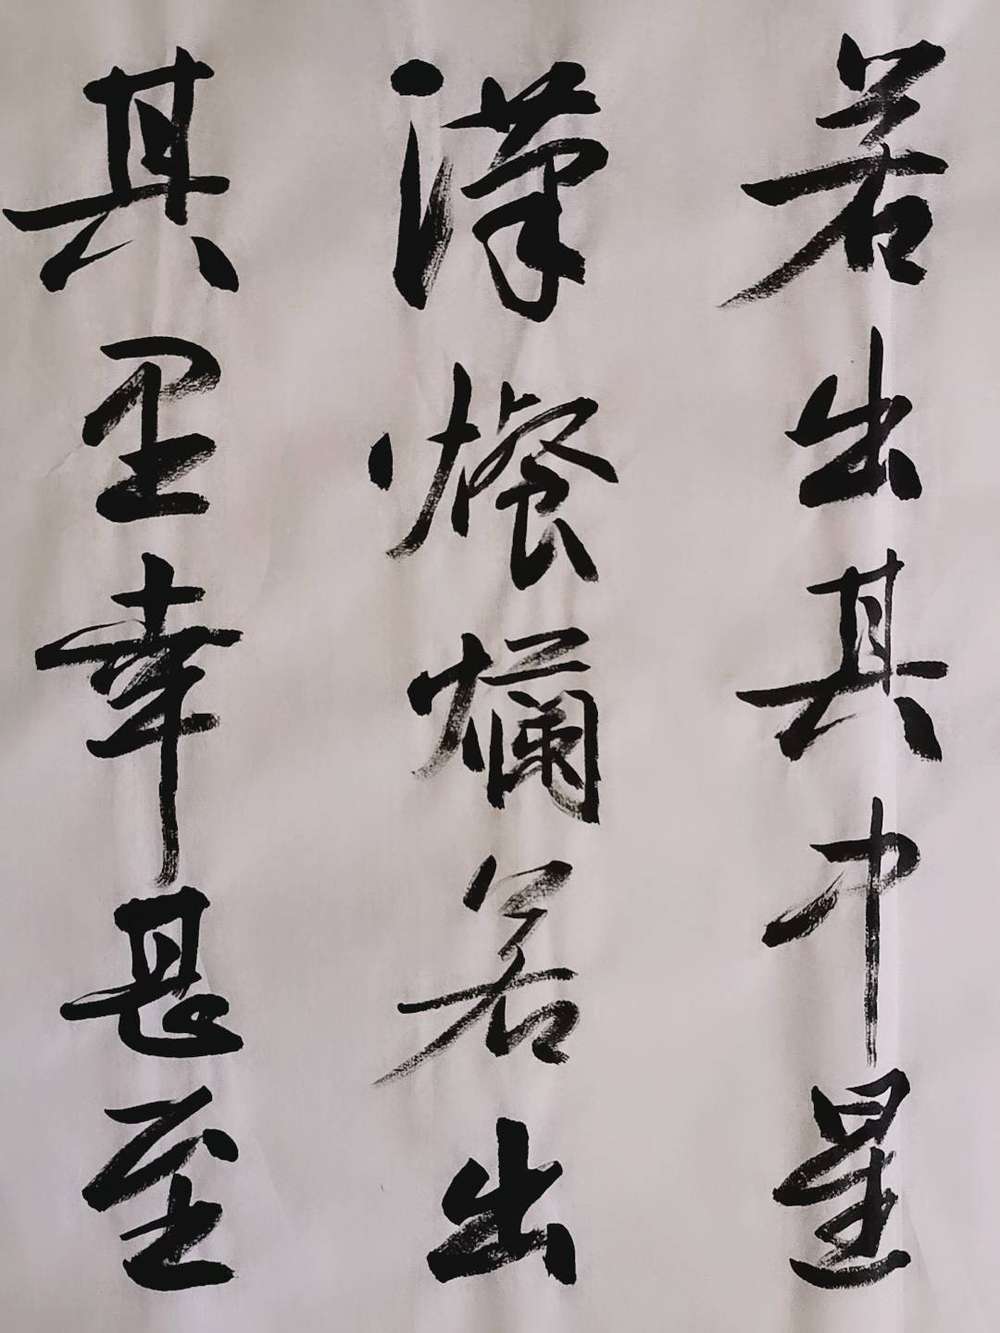 若出其中星
漢燦爛若出
其里幸甚至